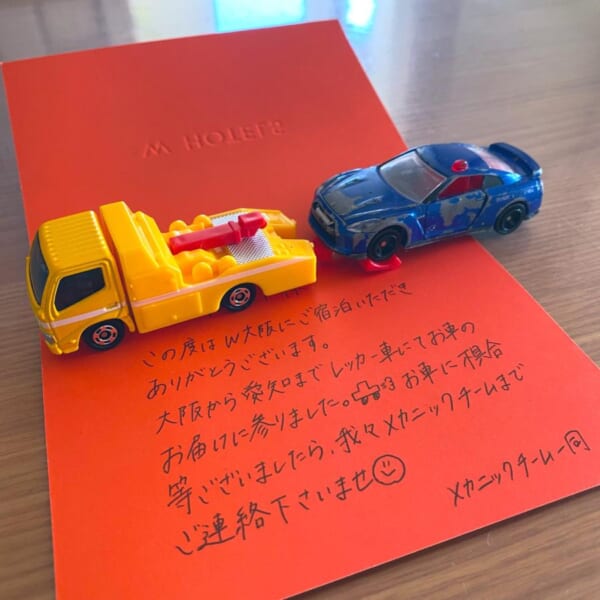 W HOTELS
この度はW大阪にご宿泊いただき
ありがとうございます。
大阪から愛知までレッカー車にてお車の
お届けに参りました。お車に損合
等ございましたら、我々メカニックチームまで
ご連絡下さいませ
メカニックチーム一同